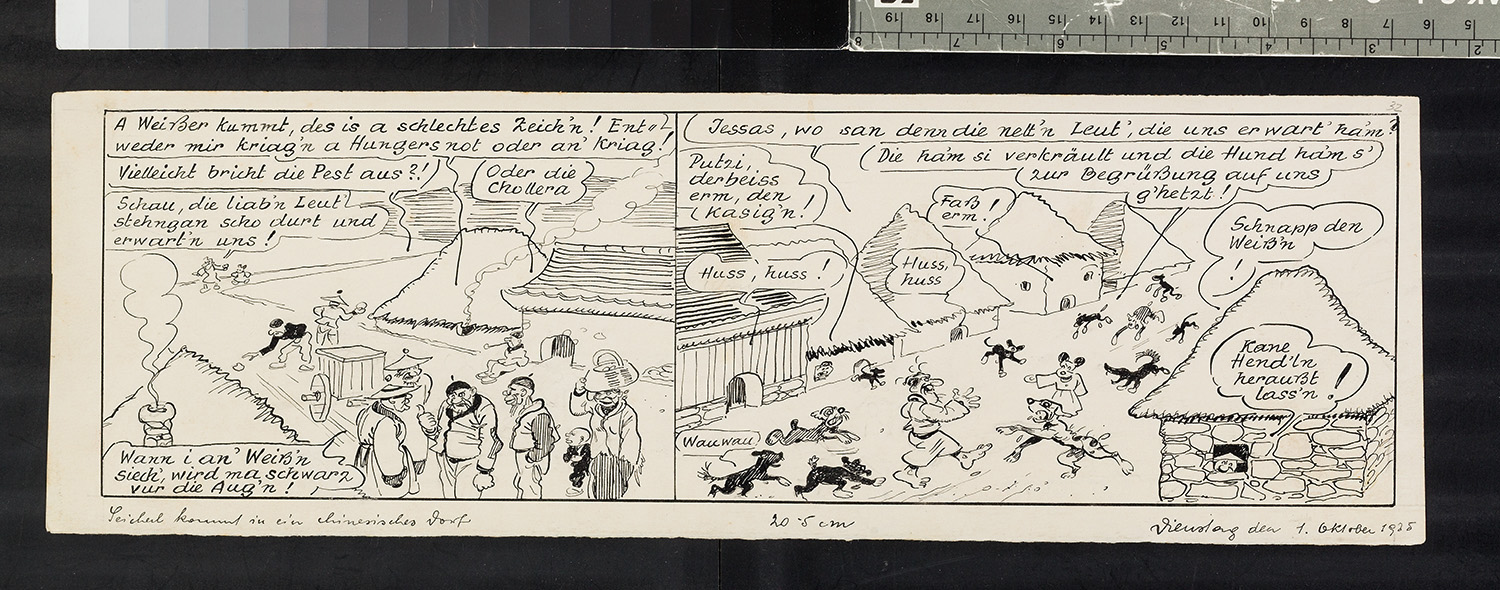 A Weißer kummt, des is a schlechtes Zeich'n! Ent=
weder mir kriag'n a Hungersnot oder an' Kriag!
Vielleicht bricht die Pest aus?!
Oder die
Chollera
Schau, die liab'n Leut'
stehngan scho durt und
erwart'n uns!
Wann i an' Weiß'n
siech', wird ma schwarz
vur die Aug'n!
Jessas, wo san denn die nett'n Leut', die uns erwart' ha'm?
Die ha'm si verkräult und die Hund ha'm s'
zur Begrüßung auf uns
g'hetzt!
Putzi,
derbeiss
erm, den
Kasig'n!
Faß
erm!
Schnapp den
Weiß'n
!
Huss, huss!
Huss,
huss
Kane
Hend'ln
heraußt
lass'n!
Wauwau
32
Seicherl kommt in ein chinesisches Dorf
20·5 cm
Dienstag den 1. Oktober 1935
19 18 17 16 15 14 13 12 11 10 9 8 7 6 5
8 7 6 5 4 3 2